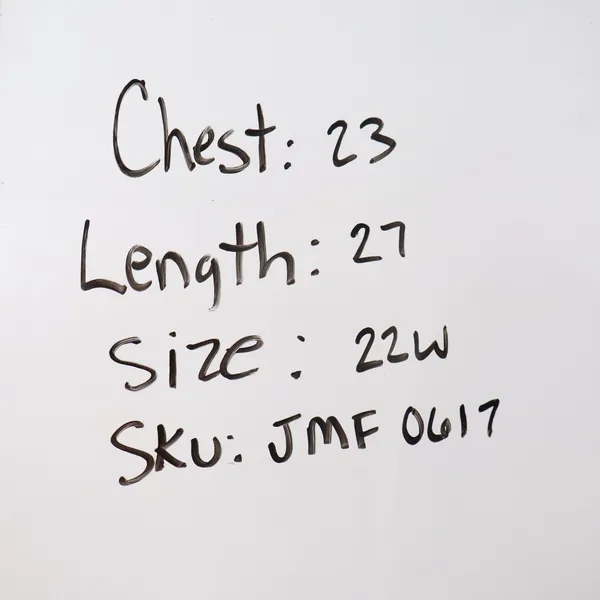 Chest: 23
Length: 27
Size: 22W
SKU: JMF 0617